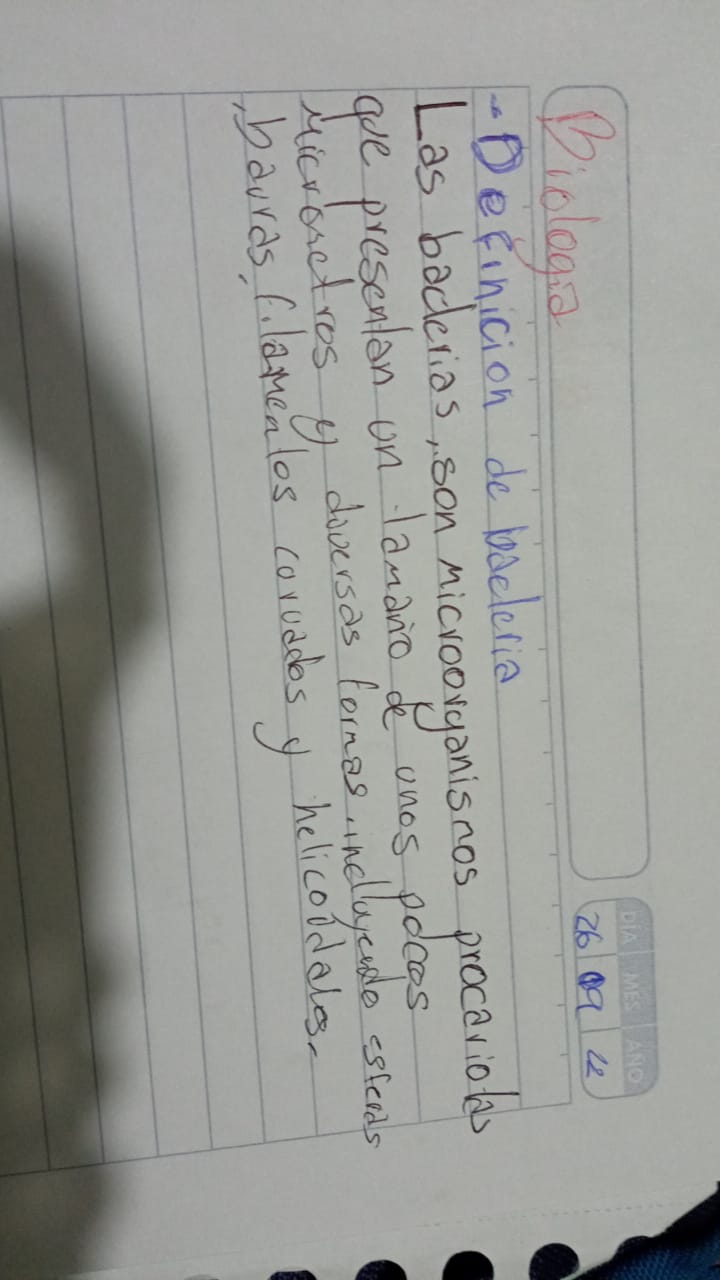 Biologia
DIA MES AÑO
26 09 22
- Definicion de bacteria
Las bacterias, son microorganismos procariotas
que presentan un tamaño de unos pocos
Micrometros y diversas formas, incluyendo esferas
, barras, filamentos curvados y helicoidales.